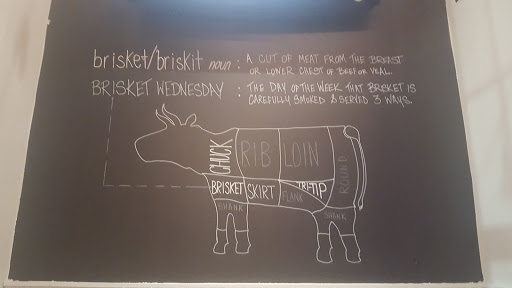 brisket/briskit noun: A CUT OF MEAT FROM THE BREAST
OR LOWER CHEST OF BEEF OR VEAL.
BRISKET WEDNESDAY : THE DAY OF THE WEEK THAT BRISKET IS
CAREFULLY SMOKED & SERVED 3 WAYS.
CHUCK
RIB
LOIN
ROUND
BRISKET
SKIRT
FLANK
TRI-TIP
SHANK
SHANK